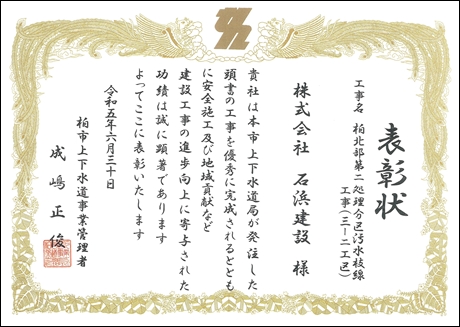 表彰状
工事名 柏北部第二処理分区汚水枝線
工事(三-二工区)
株式会社 石浜建設 様
貴社は本市上下水道局が発注した
頭書の工事を優秀に完成されるととも
に安全施工及び地域貢献など
建設工事の進歩向上に寄与された
功績は誠に顕著であります
よってここに表彰いたします
令和五年六月三十日
柏市上下水道事業管理者
成嶋正俊